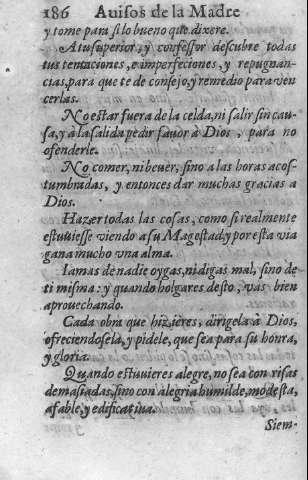 186 Auisos de la Madre
y tome para si lo bueno que dixere.
A tu superior, y confessor descubre todas
tus tentaciones, e imperfeciones, y repugnan-
cias, para que te de consejo, y remedio para ven
cerlas.
No estar fuera de la celda, ni salir sin cau-
sa, y à la salida pedir fauor à Dios, para no
ofenderle.
No comer, ni beuer, sino a las horas acos-
tumbradas, y entonces dar muchas gracias a
Dios.
Hazer todas las cosas, como si realmente
estuuiesse viendo a su Magestad, y por esta via
gana mucho vna alma.
Iamas de nadie oygas, ni digas mal, sino de
ti misma: y quando holgares desto, vas bien
aprouechando.
Cada obra que hizieres, dirigela à Dios,
ofreciendosela, y pidele, que sea para su honra,
y gloria.
Quando estuuieres alegre, no sea con risas
demasiadas, sino con alegria humilde, modesta,
afable, y edificatiua.
Siem-